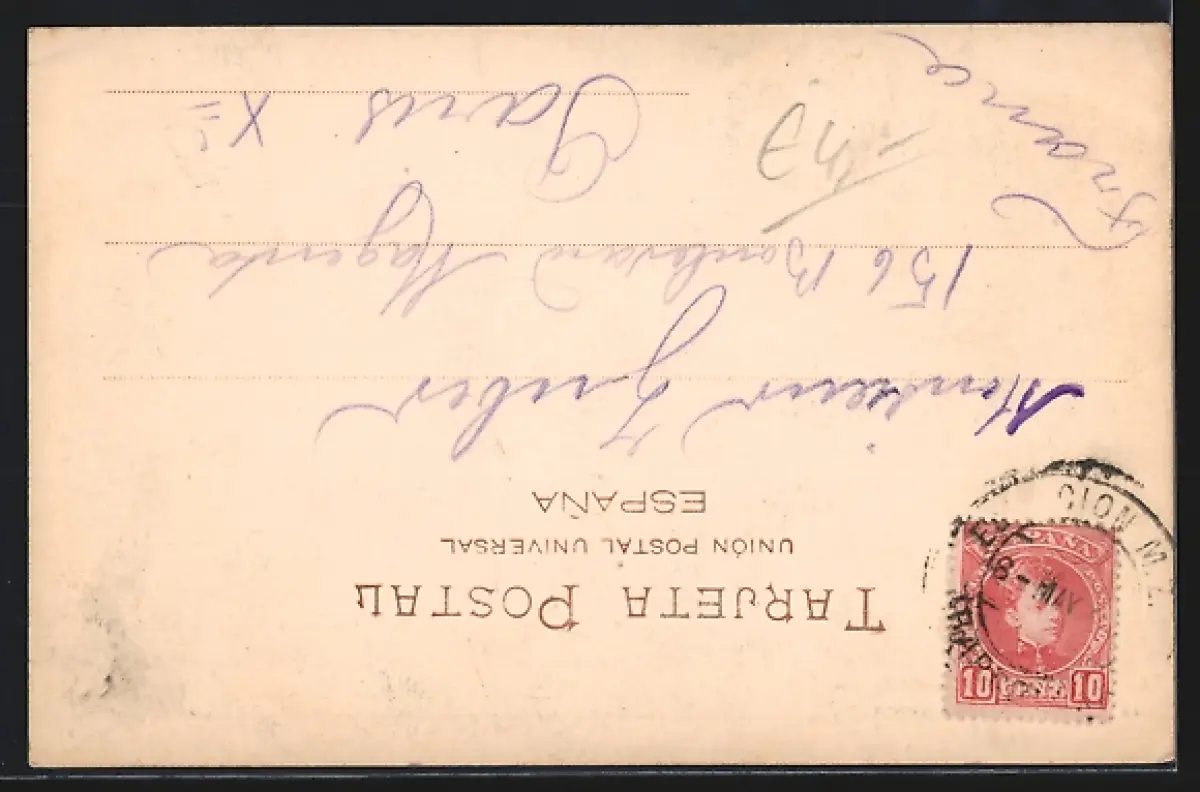 TARJETA POSTAL
UNIÓN POSTAL UNIVERSAL
ESPAÑA
Monsieur Zuber
156 Boulevard Magenta
Paris X=
France
ESPAÑA
10 CENT. 10
CION M
8 - MAY